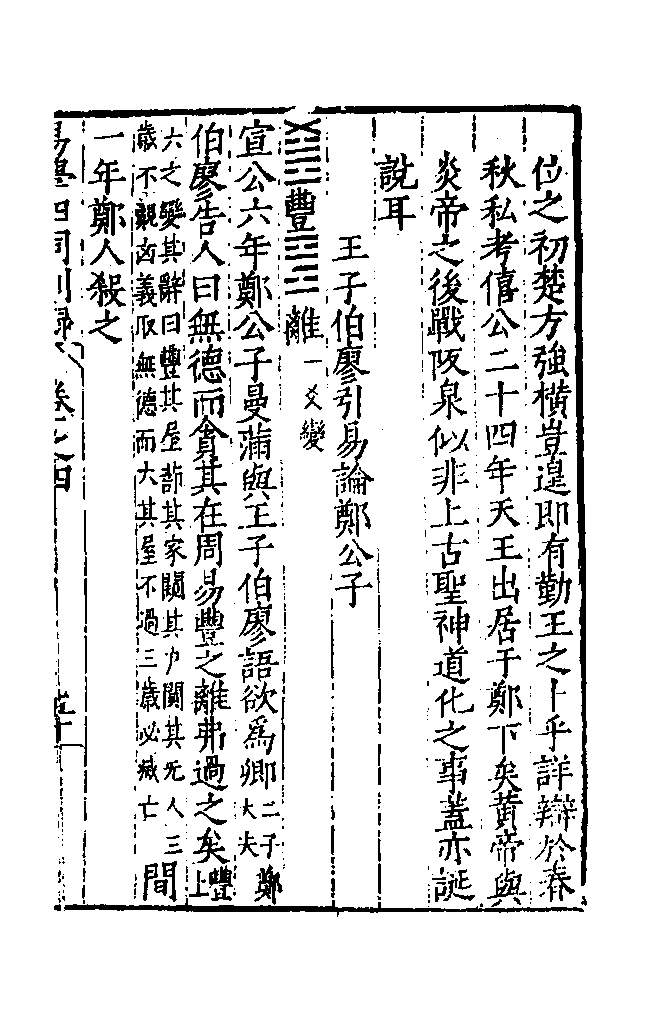 位之初楚方強橫豈遑即有勤王之卜乎詳辯於春
秋私考僖公二十四年天王出居于鄭下矣黃帝與
炎帝之後戰阪泉似非上古聖神道化之事蓋亦誕
說耳
王子伯廖引易論鄭公子
䷶豐䷝離一爻變
宣公六年鄭公子曼滿與王子伯廖語欲為卿二子鄭大夫
伯廖告人曰無德而貪其在周易豐之離弗過之矣豐上
六之變其辭曰豐其屋蔀其家闚其戶闃其无人三
歲不覿凶義取無德而大其屋不過三歲必滅亡間
一年鄭人殺之
易學四同別錄 卷之四